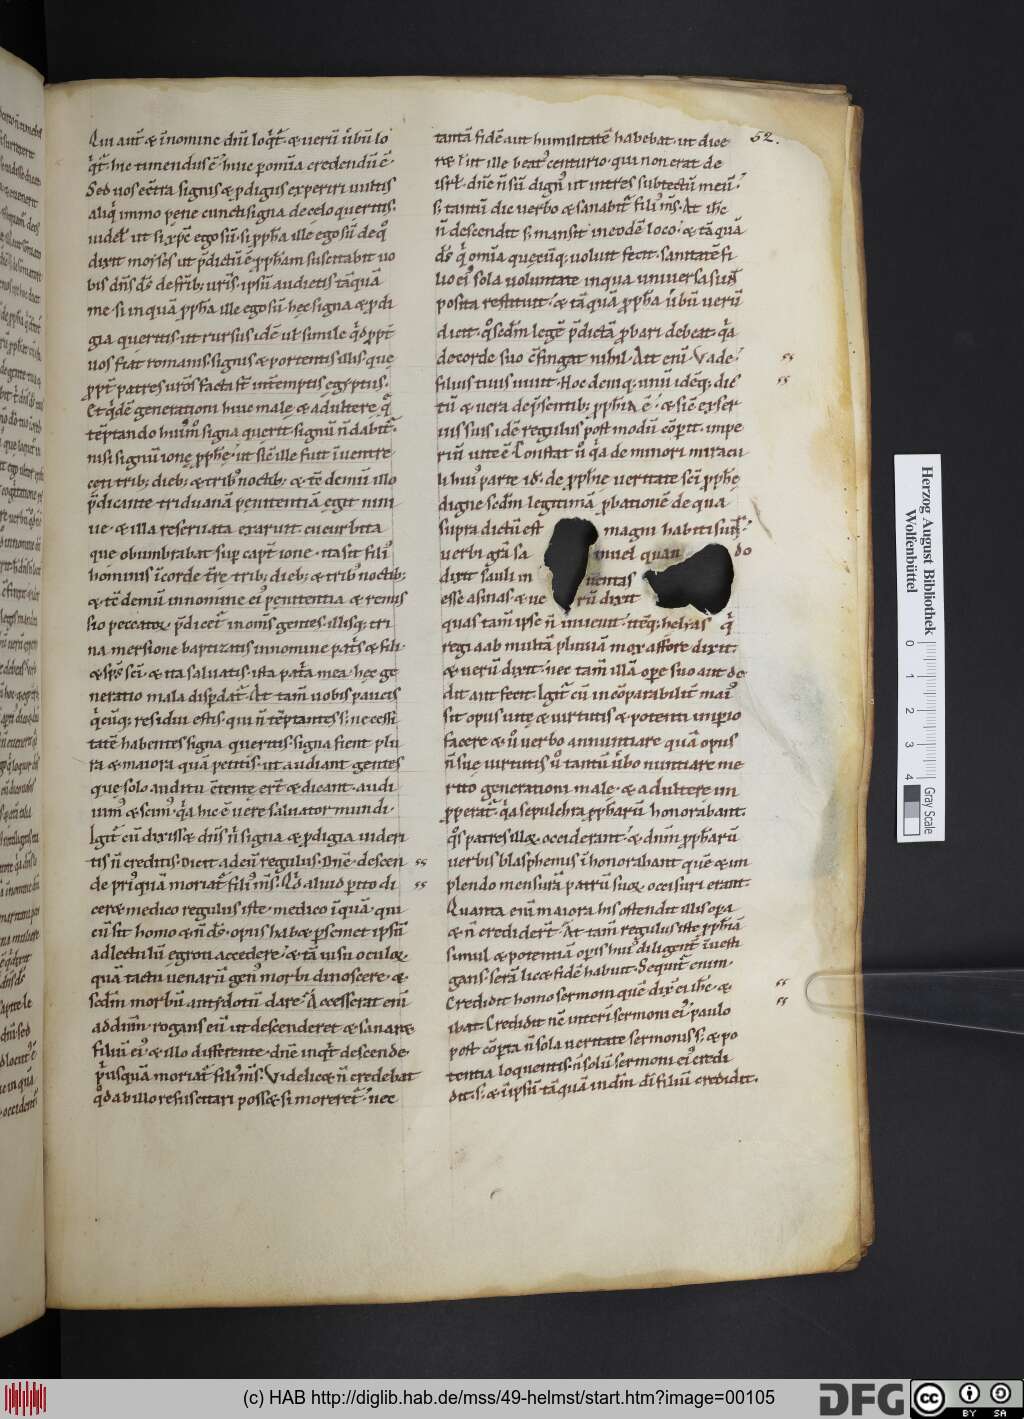 52.
Qui aut̄ & īnomine dn̄i loq̇t̄. & uerū u̇bū lo
q̇t̄. hic timendus ē. huic ꝑ omīa credendū ē.
Sed uos ec̄tra signis & ꝓdigiis experiri uultis
aliq̇ immo pene cuncti signa de celo queritis.
uidel̄ ut si xp̄c ego sū. si ꝓph̄a ille ego sū de q̊
dixit moyses ut p̄dictū ē. ꝓph̄am suscitabit uo
bis dn̄s dc̄ de frīb; uris̄. ipsū audietis tāquā
me. si inquā ꝓph̄a ille ego sū. hec signa & ꝓdi
gia queritis. ut rursus idē ul̄ simile qd̄ ꝓpt̄
uos fiat romanis. signis & portentis illis que
ꝓpt̄ patres urōs facta st̄ int̄emptis egyptiis.
Et q̇dē generationi huic male & adultere q̊
tēptando huiꝰmōi signa querit. signū n̄ dabit̄.
nisi signū ione ꝓph̄e. ut sic̄ ille fuit ī uentre
ceti trib; dieb; & tribꝰ noctib; & tē demū illo
p̄dicante triduanā penitentiā egit nini
ue. & illa reseruata exaruit cucurbita
que obumbrabat sup̄ capt̄ ione. ita sit filiꝰ
hominis ī corde t̄re trib; dieb; & tribꝰ noctib;
& tē demū in nomine eiꝰ penitentia & remis
sio peccatoꝝ p̄dicet̄ in om̄s gentes. illisq; tri
na mersione baptizatis in nomine pat̄s & fili
& sp̄s sc̄i. & ita saluatis. ista pat̄a mea. hec ge
neratio mala disꝑdat̄. At tam̄ uobis paucis
q̇cūq; residui estis. qui n̄ tēptantes s; necessi
tatē habentes signa queritis. signa fient plu
ra & maiora quā petitis. ut audiant gentes
que solo auditu c̄tente ert̄ & dicant. audi
uimꝰ & scimꝰ q̇a hic ē uere saluator mundi.
Igit̄ cū dixiss& dn̄s n̄ signa & ꝓdigia uideri
tis n̄ creditis. Dicit ad eū regulus. Dn̄e descen
de priꝰquā moriat̄ filiꝰ mꝰs. Qd̄ aliud ꝑ ito di
cer& medico regulus iste. medico īquā. qui
cū sit homo & n̄ dꝰs. opus hab& ꝑ semet ipsū
ad lectulū egroti accedere. & tā uisu oculoꝝ
quā tactu uenarū genꝰ morbi dinoscere. &
sc̄dm morbū antidotū dare. Accesserat enī
ad dn̄m. rogans eū ut descenderet & sanar&
filiū eiꝰ. & illo differente. dn̄e inq̇t descende
p̄usquā moriat̄ filiꝰ mꝰs. Videlic& n̄ credebat
qd̄ ab illo resuscitari poss& si moreret̄. nec
tantā fidē aut humilitatē habebat. ut dice
r& sic̄ ille beatꝰ centurio. qui non erat de
isrl̄. dn̄e n̄ sū dignꝰ ut intres sub tectū meū.
s; tantū dic uerbo & sanabit̄ filiꝰ mꝰs. At ih̄c
n̄ descendit s; mansit in eodē loco. & tāquā
dꝰs q̇ omīa quecūq; uoluit fecit. sanitatē fi
lio eiꝰ sola uoluntate in qua uniuersa sunt
posita restituit. & tāquā ꝓph̄a u̇bū uerū
dicit. qꝰ sc̄dm legē p̄dictā ꝓbari debeat. q̇a
de corde suo c̄fingat nihil. Ait enī. Vade.
filius tuus uiuit. Hoc deniq; unū idēq; dic̄
tū & uera de p̄sentib; ꝓph̄ia ē. & sic̄ ex ser
uis suis idē regulus post modū cōꝑit. impe
riū uite ē. Constat u̇ q̇a de minori miracu
li huiꝰ parte id. de ꝓph̄ie ueritate sc̄i ꝓph̄e
digne sc̄dm legitimā ꝓbationē de qua
supra dictū est magni habiti sunt.
uerbi gr̄a sa muel quan do
dixit sauli in uentas
esse asinas & ue rū dixit
quas tam̄ ipse n̄ inuenit. itēq; helyas q̇
regi aab multā pluuiā mox affore dixit.
& uerū dixit. nec tam̄ illā ope suo aut de
dit aut fecit. Igit̄ cū incōparabilit̄ maiꝰ
sit opus uite & uirtutis & potenti imꝑio
facere & u̇ uerbo annuntiare quā opus
n̄ sue uirtutis u̇ tantū u̇bo nuntiare me
rito generationi male & adultere im
ꝓperat̄. q̇a sepulchra ꝓph̄arū honorabant.
q̊s patres illoꝝ occiderant. & dn̄m ꝓph̄arū
uerbis blasphemiis ī honorabant quē & im
plendo mensurā patrū suoꝝ occisuri erant.
Quanta enī maiora his ostendit illis opa
& n̄ credidert̄. At tam̄ regulus iste ꝓph̄iā
simul & potentiā opis huiꝰ diligent̄ īuesti
gans. serā lic& fidē habuit. Sequit̄ enim.
Credidit homo sermoni quē dixꝰ ei ih̄c. &
ibat. Credidit nc̄ interī sermoni eiꝰ. paulo
post cōꝑta n̄ sola ueritate sermonis s; & po
tentia loquentis. n̄ solū sermoni eiꝰ credi
dit. s; & īipsū tāquā in dn̄m dī filiū credidit.
Herzog August Bibliothek
Wolfenbüttel
0 1 2 3 4
Gray Scale
(c) HAB http://diglib.hab.de/mss/49-helmst/start.htm?image=00105
DFG
CC BY SA